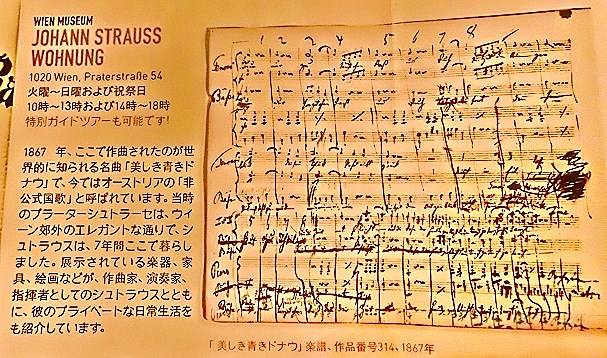 WIEN MUSEUM
JOHANN STRAUSS
WOHNUNG
1020 Wien, Praterstraße 54
火曜〜日曜および祝祭日
10時〜13時および14時〜18時
特別ガイドツアーも可能です!
1867 年、ここで作曲されたのが世
界的に知られる名曲「美しき青きド
ナウ」で、今ではオーストリアの「非
公式国歌」と呼ばれています。当時
のプラーターシュトラーセは、ウィ
ーン郊外のエレガントな通りで、シ
ュトラウスは、7年間ここで暮らし
ました。展示されている楽器、家
具、絵画などが、作曲家、演奏家、
指揮者としてのシュトラウスととも
に、彼のプライベートな日常生活を
も紹介しています。
1 2 3 4 5 6 7 8
「美しき青きドナウ」楽譜、作品番号314、1867年